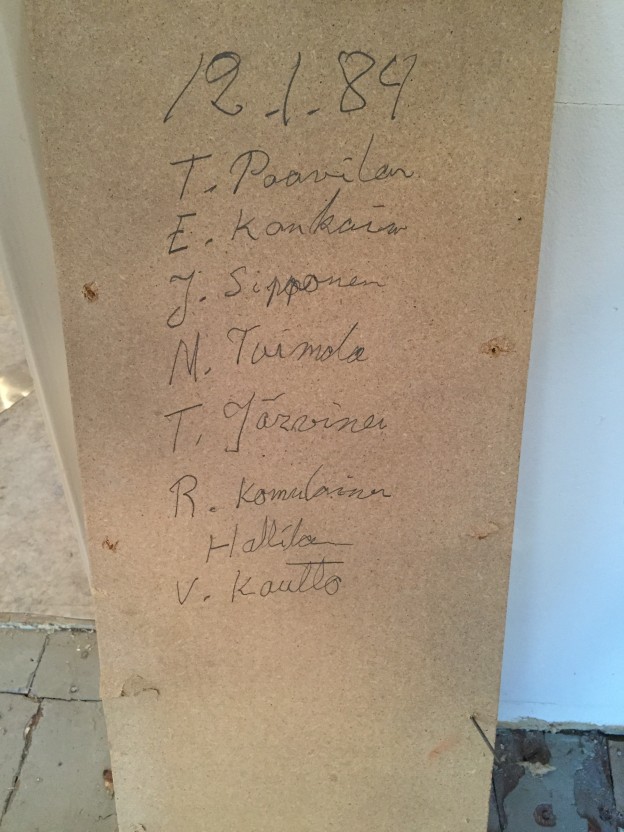 12.1.84
T. Paavilan
E. Kankain
J. Sipponen
M. Toimola
T. Järvinen
R. Komulainen
V. Kautto